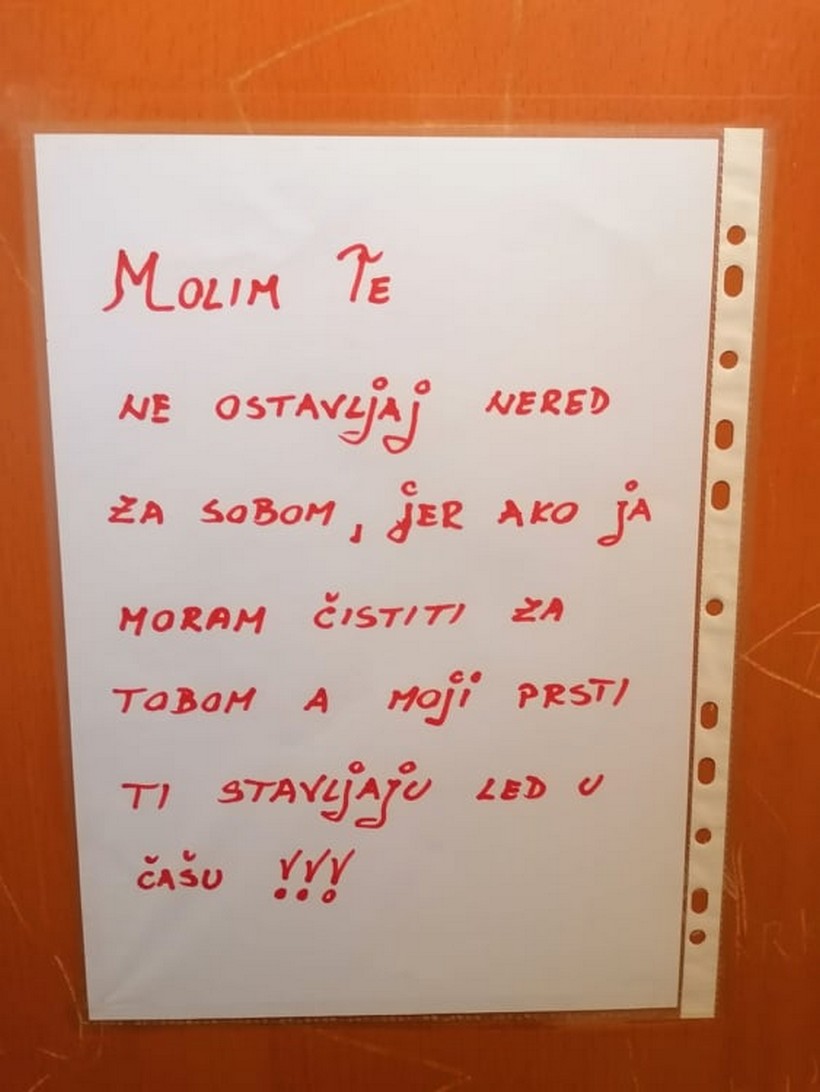 MOLIM TE
NE OSTAVLjAj NERED
ZA SOBOM, jER AKO jA
MORAM ČISTITI ZA
TOBOM A MOji PRSTI
TI STAVLjAjU LED U
ČAŠU !!!